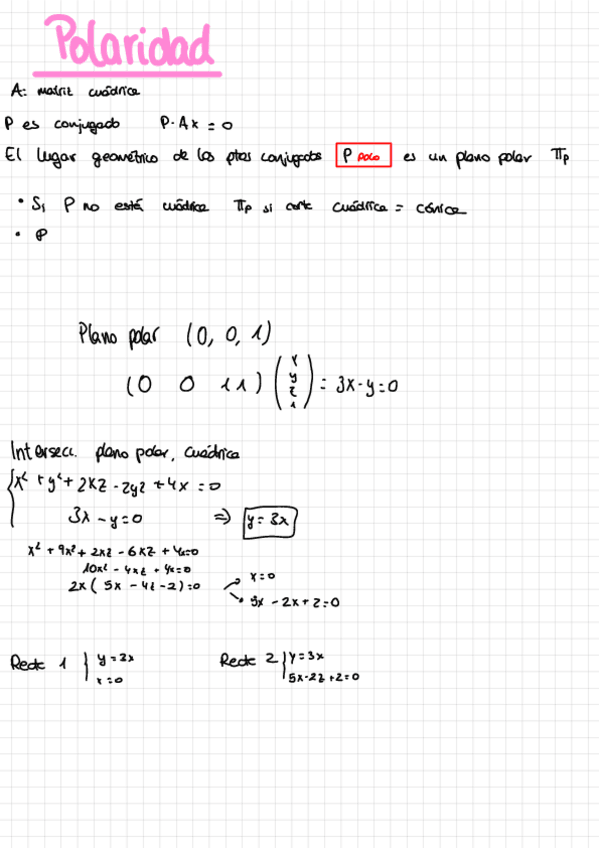 Polaridad
A: matriz cuádrica
P es conjugado P·Ax = 0
El lugar geométrico de los ptos conjugados P polo es un plano polar πp
• Si P no está cuádrica πp si corte cuádrica = cónica
• P
Plano polar (0, 0, 1)
(0 0 1 1) (x y z 1) = 3x-y=0
Intersecc. plano polar, cuádrica
x² + y² + 2xz - 2yz + 4x = 0
3x - y = 0 ⇒ y = 3x
x² + 9x² + 2xz - 6xz + 4x=0
10x² - 4xz + 4x=0
2x( 5x - 4z -2)=0 x=0
5x - 2x + 2=0
Recta 1 y=3x Recta 2 y=3x
x=0 5x-2z+2=0